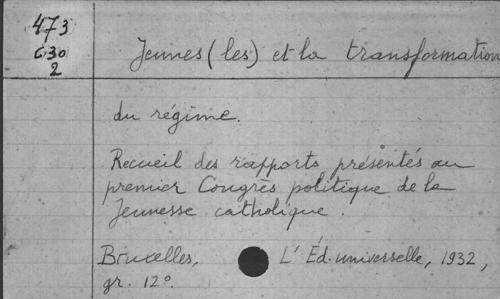 473
G30
2
Jeunes (les) et la transformation
du régime.
Recueil des rapports présentés au
premier Congrès politique de la
Jeunesse catholique.
Bruxelles, L'Éd. universelle, 1932,
gr. 12°.